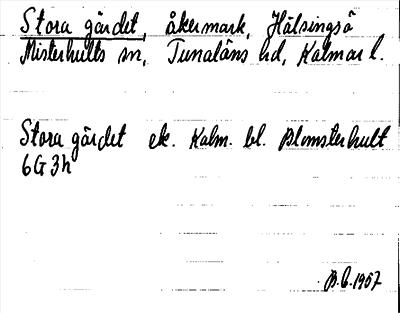 Stora gärdet, åkermark, Hälsingsö
Misterhults sn, Tunaläns hd, Kalmar l.
Stora gärdet ek. Kalm. bl. Blomsterhult
6G3h
B.G. 1967